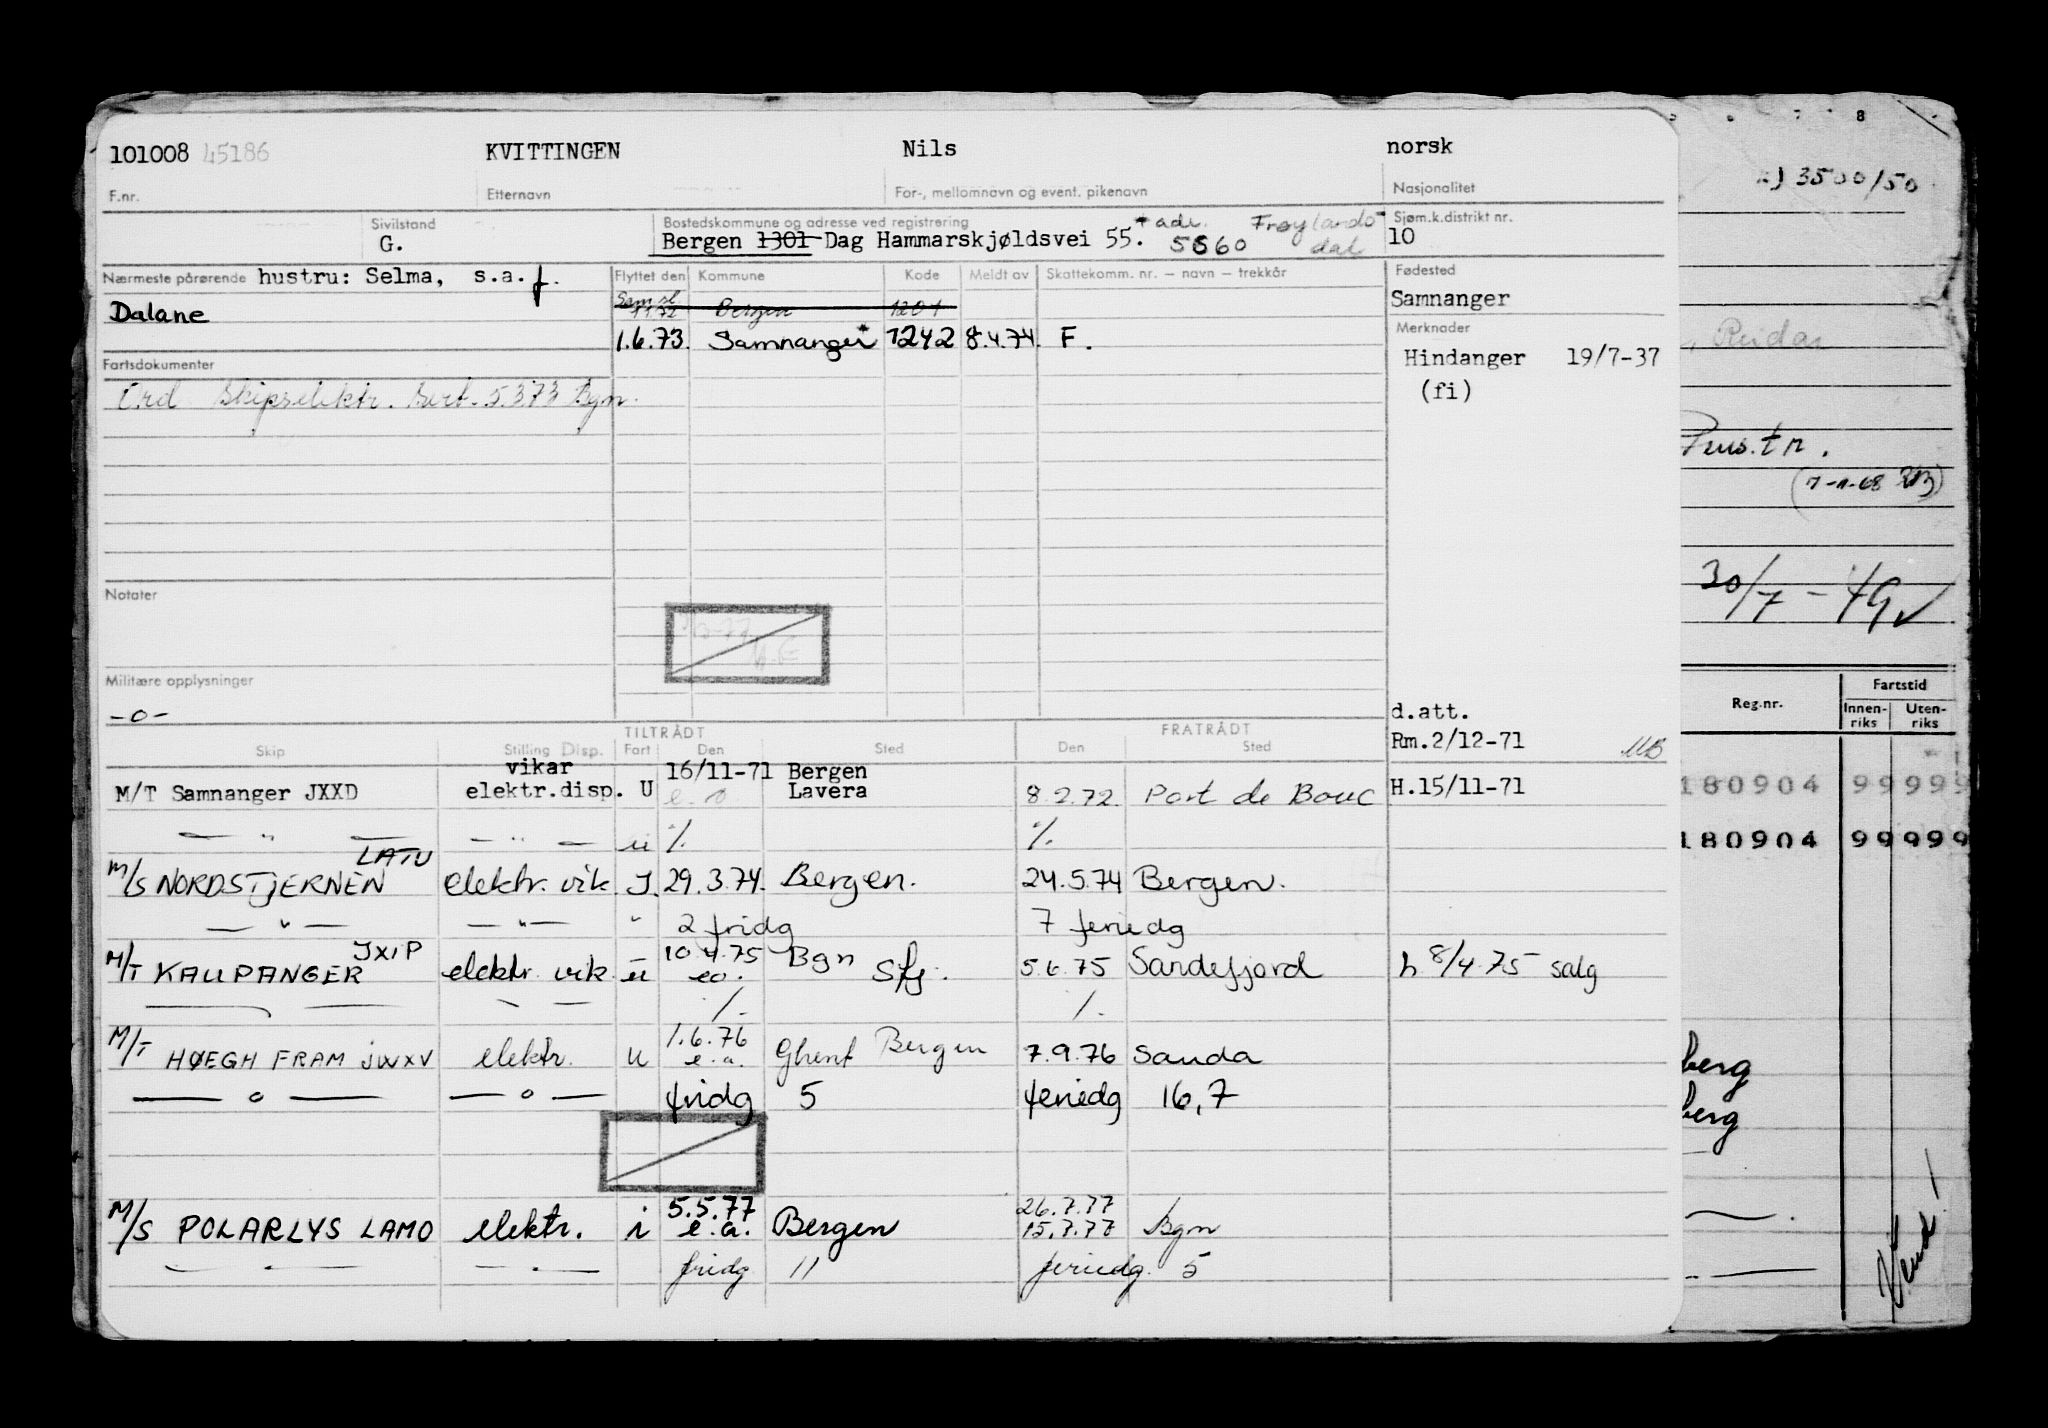 101008 45186 KVITTINGEN Nils norsk
F.nr. Etternavn For-, mellomnavn og event. pikenavn Nasjonalitet
Sivilstand Bostedskommune og adresse ved registrering * adr. Frøylands- Sjøm.k.distrikt nr.
G. Bergen 1301 Dag Hammarskjøldsvei 55. 5660 dal 10
Nærmeste pårørende hustru: Selma, s.a.f. Flyttet den Kommune Kode Meldt av Skattekomm. nr. – navn – trekkår Fødested
Dalane Bergen 1201 Samnanger
1.6.73. Samnanger* 1242 8.4.74. F. Merknader
Fartsdokumenter Hindanger 19/7-37
Skipselektr. Sert. 5.373 Bgn. (fi)
Notater
Militære opplysninger
-o- d.att.
TILTRÅDT FRATRÅDT Rm.2/12-71
Skip Stilling Disp. Fart Den Sted Den Sted
vikar 16/11-71 Bergen
M/T Samnanger JXXD elektr.disp. U Lavera 8.2.72. Port de Bouc H.15/11-71
— " — — " — u %. %.
LATU
M/S NORDSTJERNEN elektr. vik. I. 29.3.74. Bergen. 24.5.74 Bergen.
— " — — " — " 2 fridg 7 feriedg
JXIP 10.4.75 Bgn
M/T KAUPANGER elektr. vik. u eo. Sfj. 5.6.75 Sandefjord h 8/4.75 salg
/. /.
1.6.76
M/T HØEGH FRAM JWXV elektr. u e.a. Ghent Bergen 7.9.76 Sauda
— o — — o — fridg 5 feriedg 16,7
5.5.77 26.7.77
M/S POLARLYS LAMO elektr. i e.a. Bergen 15.7.77 Bgn
fridg 11 feriedg. 5
7 8
3500/50
, Reidar
Pens.tr.
30/7 - 49
Reg.nr. Fartstid
Innen-riks Uten-riks
180904 99999
180904 99999
berg
berg